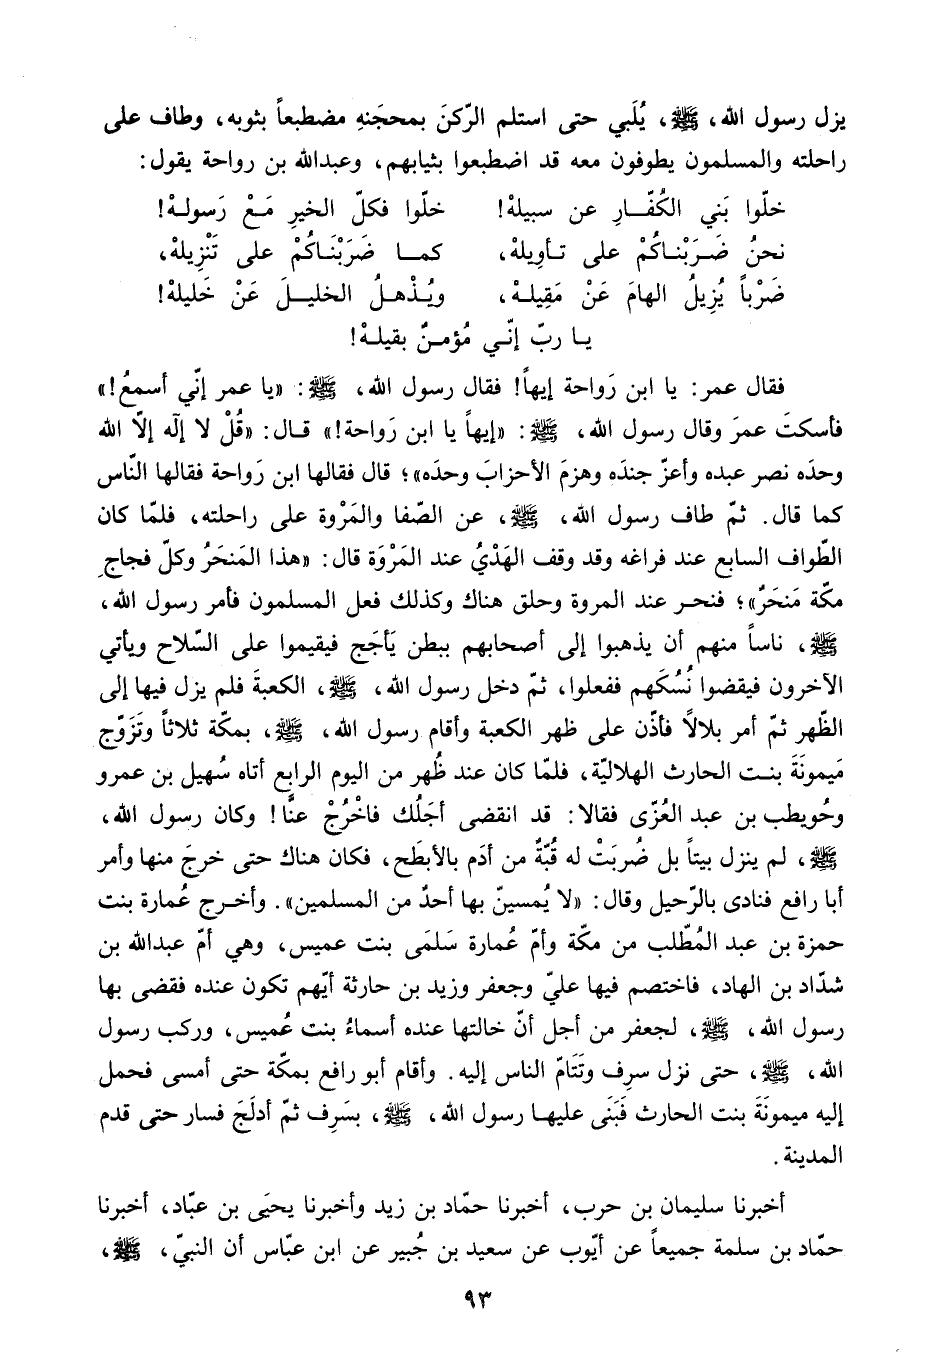 يزل رسول الله، ﷺ، يُلَبي حتى استلم الرّكنَ بمحجَنهِ مضطبعاً بثوبه، وطاف على
راحلته والمسلمون يطوفون معه قد اضطبعوا بثيابهم، وعبدالله بن رواحة يقول:
خلّوا بَني الكُفّارِ عن سبيلهْ! خلّوا فكلّ الخيرِ مَعْ رَسولهْ!
نحنُ ضَرَبْناكُمْ على تأوِيلهْ، كما ضَرَبْنَاكُمْ على تَنْزِيلهْ،
ضَرْباً يُزِيلُ الهامَ عَنْ مَقِيلهْ، ويُذْهلُ الخليلَ عَنْ خَليلهْ!
يا ربّ إنّي مُؤمنٌ بقيلهْ!
فقال عمر: يا ابن رَواحة إيهاً! فقال رسول الله، ﷺ: «يا عمر إنّي أسمعُ!»
فأسكتَ عمرَ وقال رسول الله، ﷺ: «إيهاً يا ابن رَواحة!» قال: «قُلْ لا إلَه إلاّ الله
وحدَه نصر عبده وأعزّ جندَه وهزمَ الأحزابَ وحدَه»؛ قال فقالها ابن رَواحة فقالها النّاس
كما قال. ثمّ طاف رسول الله، ﷺ، عن الصّفا والمَرْوة على راحلته، فلمّا كان
الطّواف السابع عند فراغه وقد وقف الهَدْيُ عند المَرْوَة قال: «هذا المَنحَرُ وكلّ فجاجِ
مكّة مَنحَرٌ»؛ فنحر عند المروة وحلق هناك وكذلك فعل المسلمون فأمر رسول الله،
ﷺ، ناساً منهم أن يذهبوا إلى أصحابهم ببطن يَأجَج فيقيموا على السّلاح ويأتي
الآخرون فيقضوا نُسُكَهم ففعلوا، ثمّ دخل رسول الله، ﷺ، الكعبةَ فلم يزل فيها إلى
الظّهر ثمّ أمر بلالاً فأذّن على ظهر الكعبة وأقام رسول الله، ﷺ، بمكّة ثلاثاً وتَزَوّج
مَيمونَةَ بنت الحارث الهلاليّة، فلمّا كان عند ظُهر من اليوم الرابع أتاه سُهيل بن عمرو
وحُويطب بن عبد العُزّى فقالا: قد انقضى أجَلُك فاخْرُجْ عنَّا! وكان رسول الله،
ﷺ، لم ينزل بيتاً بل ضُربَتْ له قُبّةٌ من أدَم بالأبطَح، فكان هناك حتى خرجَ منها وأمر
أبا رافع فنادى بالرّحيل وقال: «لا يُمسينّ بها أحدٌ من المسلمين». وأخرج عُمارة بنت
حمزة بن عبد المُطّلب من مكّة وأمّ عُمارة سَلمَى بنت عميس، وهي أمّ عبدالله بن
شدّاد بن الهاد، فاختصم فيها عليّ وجعفر وزيد بن حارثة أيّهم تكون عنده فقضى بها
رسول الله، ﷺ، لجعفر من أجل أنّ خالتها عنده أسماءُ بنت عُميس، وركب رسول
الله، ﷺ، حتى نزل سرِف وتَتَامّ الناس إليه. وأقام أبو رافع بمكّة حتى أمسى فحمل
إليه ميمونَةَ بنت الحارث فَبَنَى عليها رسول الله، ﷺ، بسَرِف ثمّ أدلَجَ فسار حتى قدم
المدينة.
أخبرنا سليمان بن حرب، أخبرنا حمّاد بن زيد وأخبرنا يحيَى بن عبّاد، أخبرنا
حمّاد بن سلمة جميعاً عن أيّوب عن سعيد بن جُبير عن ابن عبّاس أن النبيّ، ﷺ،
٩٣